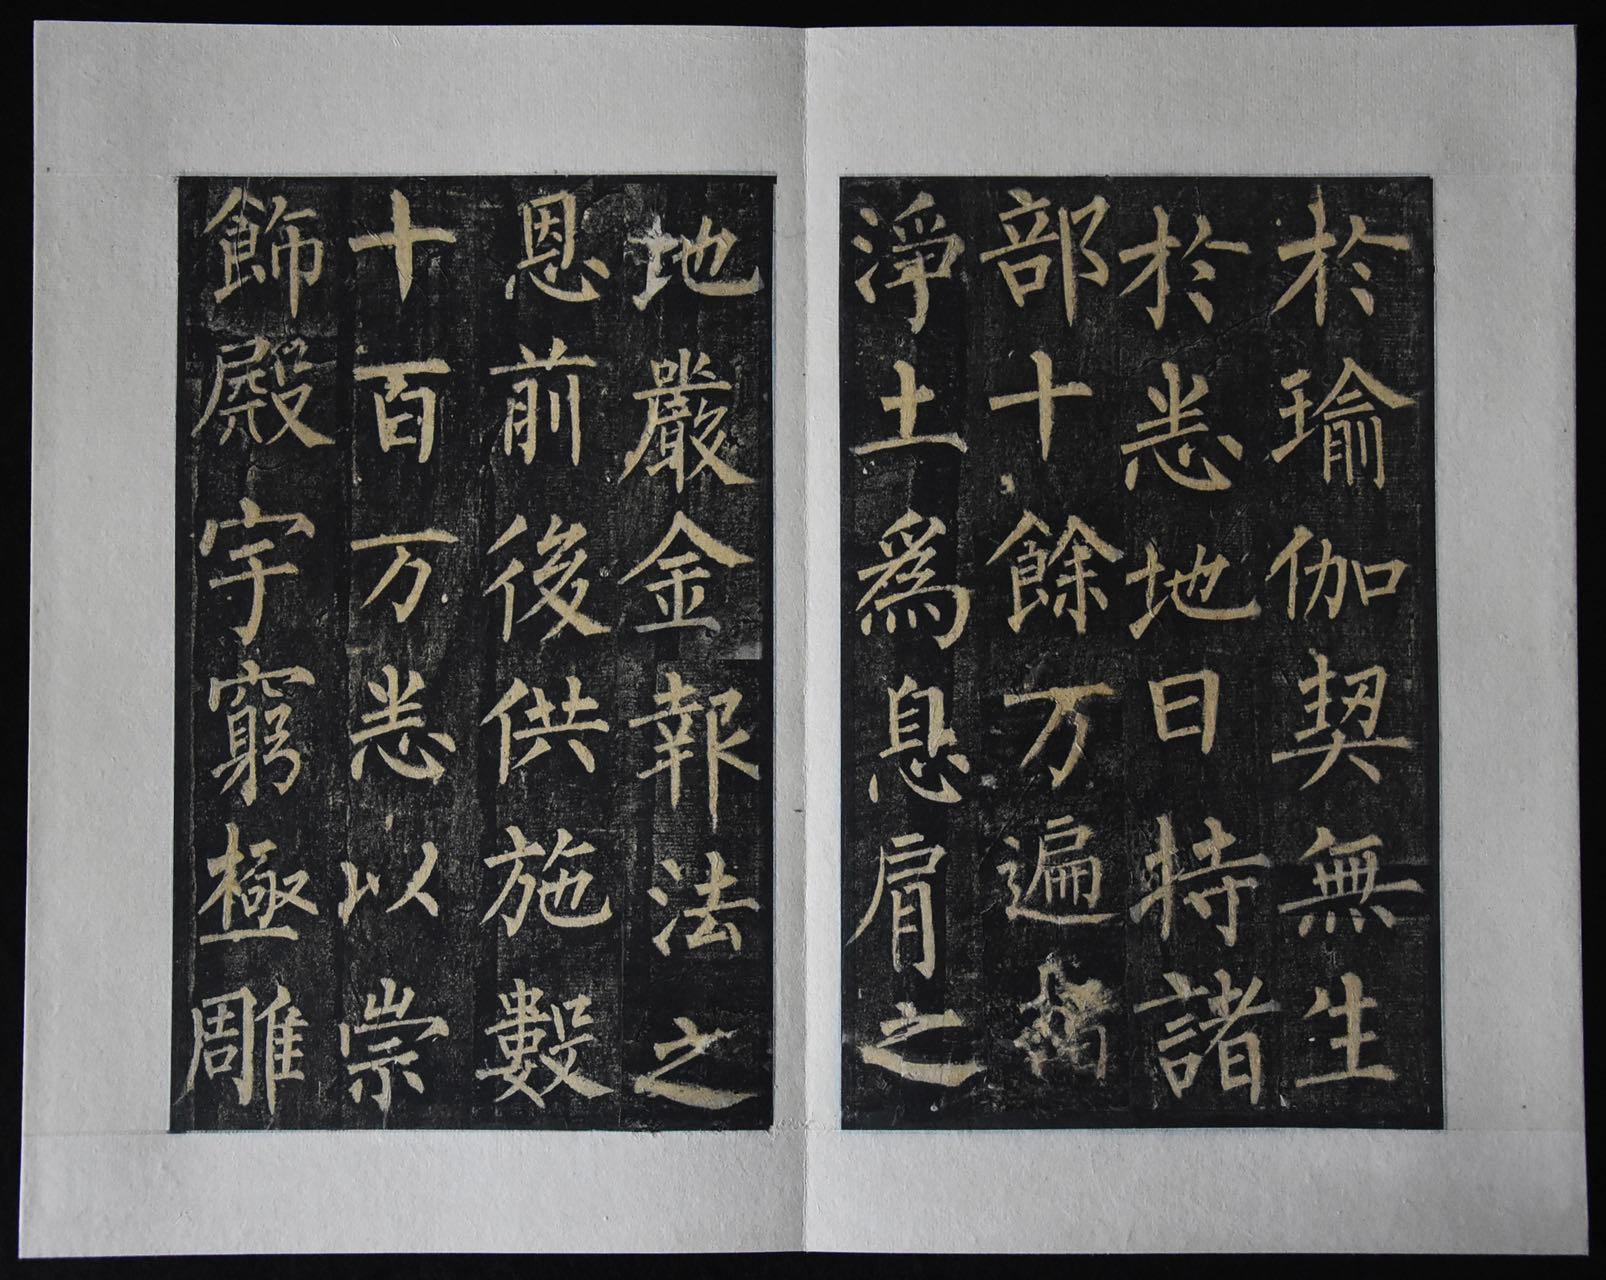 於瑜伽契無生
於悉地日持諸
部十餘万遍指
淨土爲息肩之
地嚴金報法之
恩前後供施數
十百万悉以崇
飾殿宇窮極雕